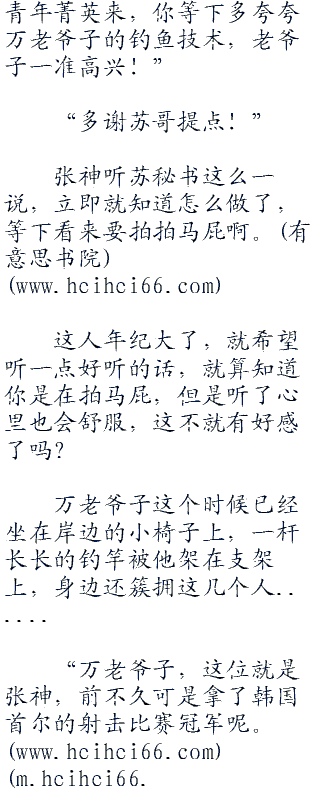 青年菁英来，你等下多夸夸
万老爷子的钓鱼技术，老爷
子一准高兴！”
“多谢苏哥提点！”
张神听苏秘书这么一
说，立即就知道怎么做了，
等下看来要拍拍马屁啊。(有
意思书院)
(www.hcihci66.com)
这人年纪大了，就希望
听一点好听的话，就算知道
你是在拍马屁，但是听了心
里也会舒服，这不就有好感
了吗?
万老爷子这个时候已经
坐在岸边的小椅子上，一杆
长长的钓竿被他架在支架
上，身边还簇拥这几个人..
....
“万老爷子，这位就是
张神，前不久可是拿了韩国
首尔的射击比赛冠军呢。
(www.hcihci66.com)
(m.hcihci66.